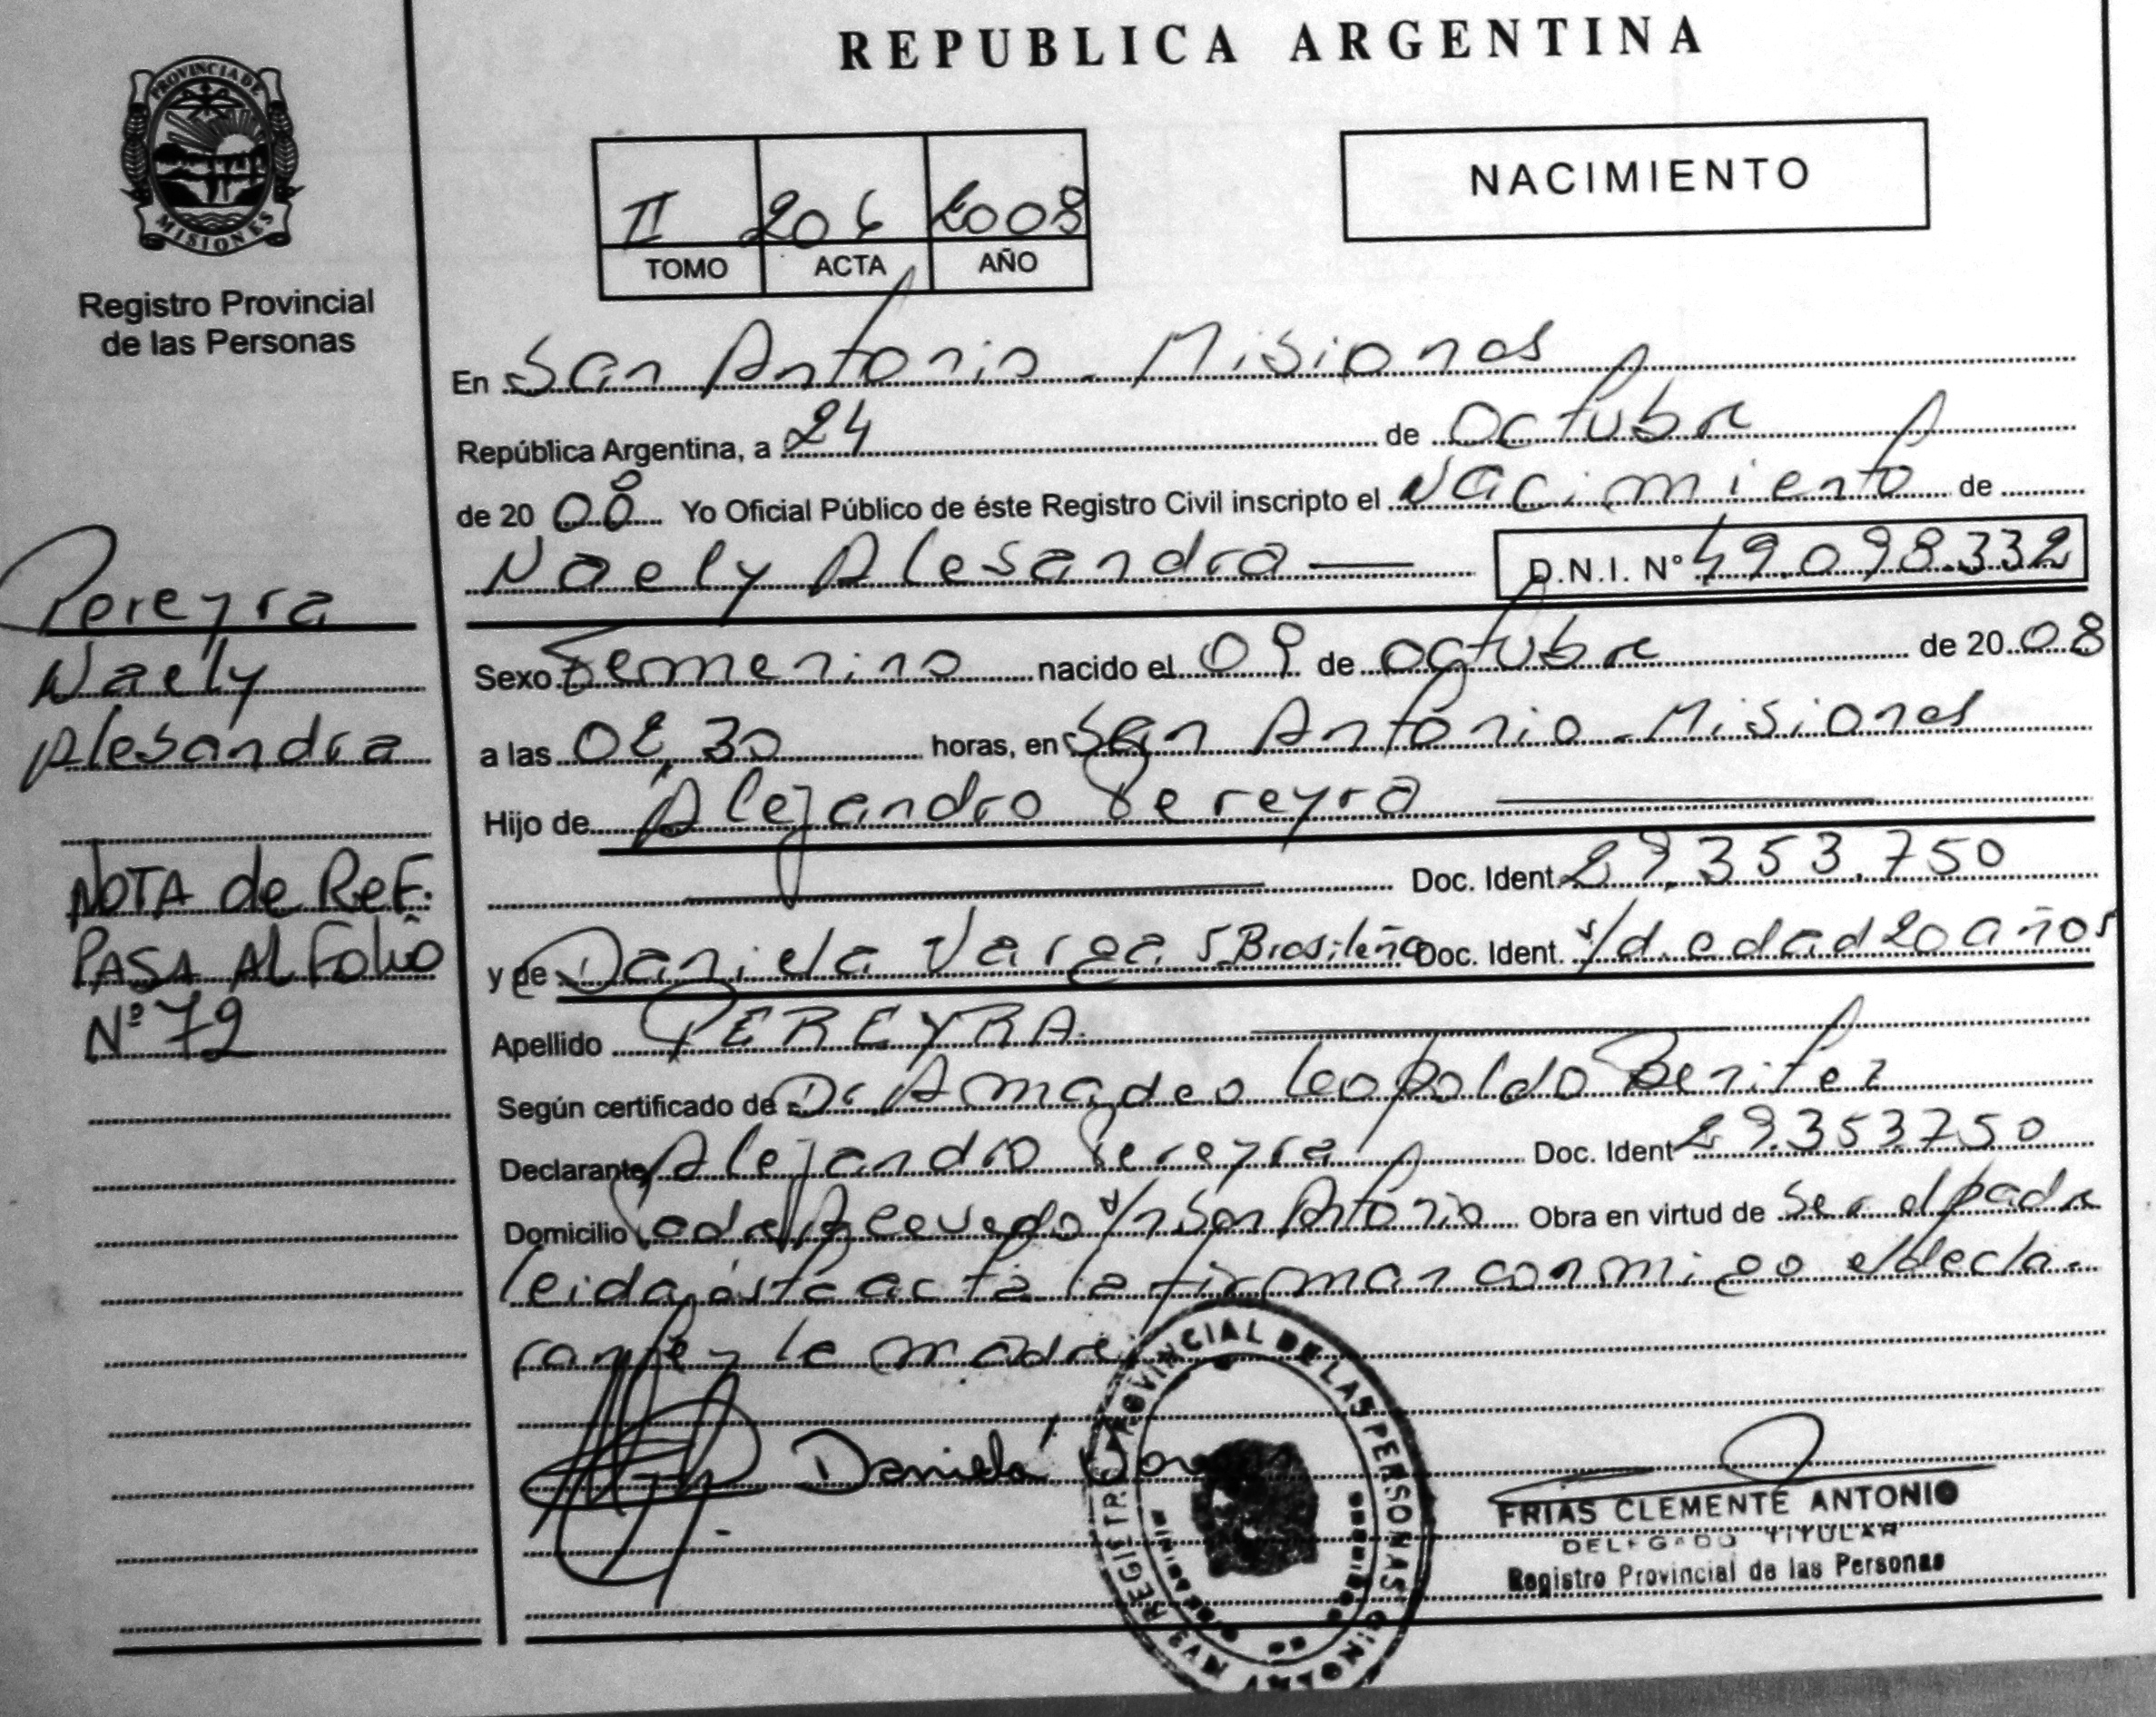 REPUBLICA ARGENTINA
PROVINCIA DE
MISIONES
Registro Provincial
de las Personas
II 206 2008
TOMO ACTA AÑO
NACIMIENTO
En San Antonio - Misiones
República Argentina, a 24 de octubre
de 20 08 Yo Oficial Público de éste Registro Civil inscripto el Nacimiento de
Naely Alesandra D.N.I. Nº 49.098.332
Pereyra
Naely
Alesandra
NOTA de Ref.
PASA Al Folio
Nº 72
Sexo Femenino nacido el 09 de octubre de 20 08
a las 30 horas, en San Antonio - Misiones
Hijo de Alejandro Pereyra
Doc. Ident. 29.353.750
y de Daniela Varga Brasileña Doc. Ident. s/d. edad 20 años
Apellido PEREYRA
Según certificado de Dr. Amadeo Leopoldo Benitez
Declarante Alejandro Pereyra Doc. Ident 29.353750
Domicilio Padre Acevedo s/n San Antonio Obra en virtud de ser el padre
leida ésta acta la firman conmigo el decla-
rante y la madre
Daniela
REGISTRO PROVINCIAL DE LAS PERSONAS
FRIAS CLEMENTE ANTONIO
DELEGADO TITULAR
Registro Provincial de las Personas